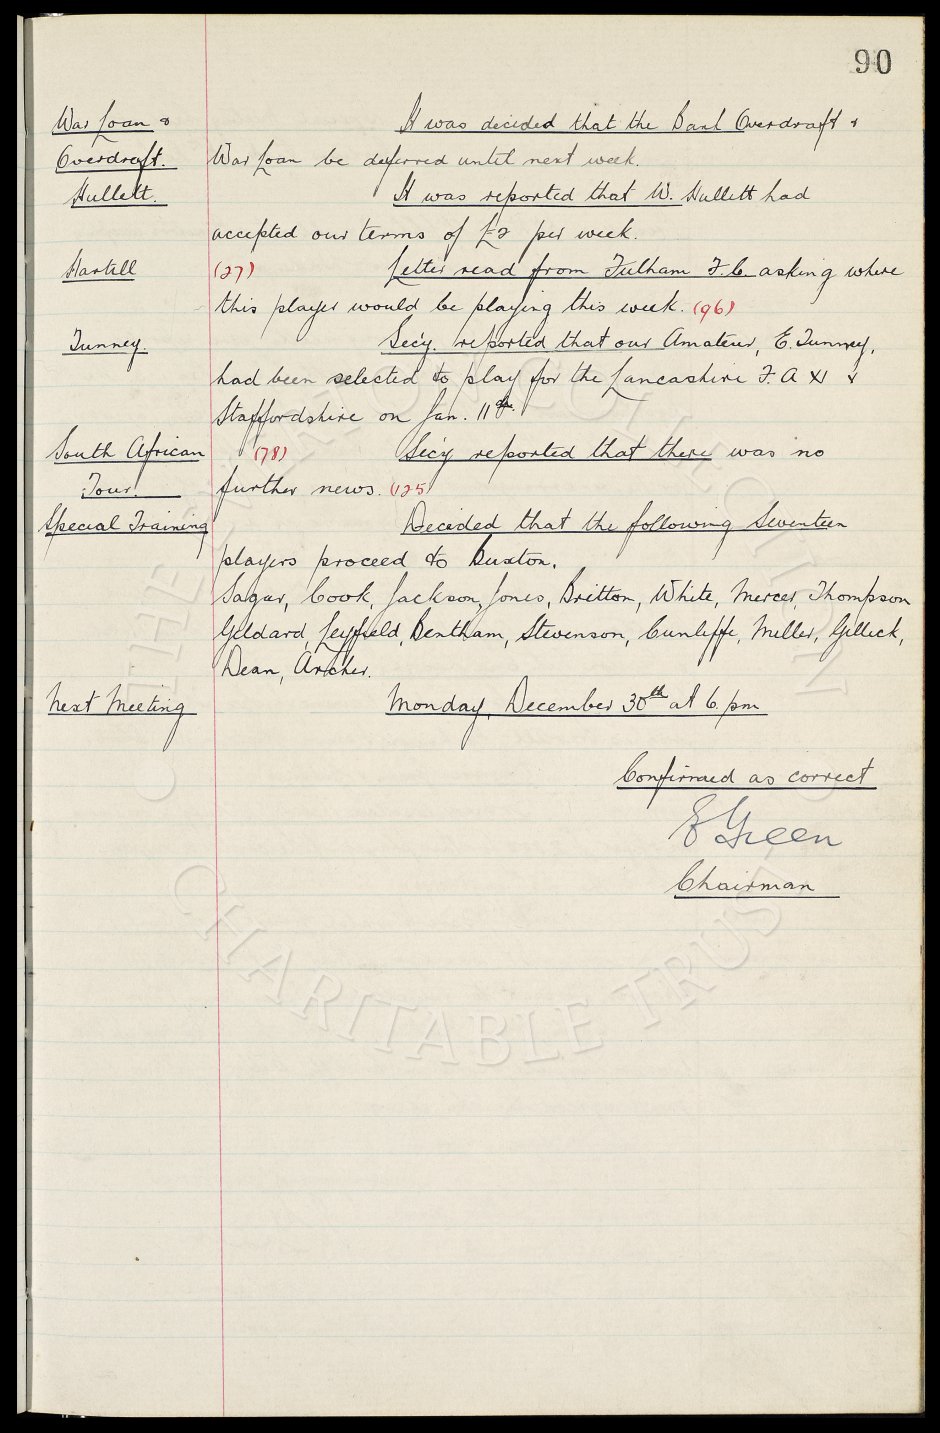 90
War Loan &
Overdraft.
It was decided that the Bank Overdraft &
War Loan be deferred until next week.
Hullett.
It was reported that W. Hullett had
accepted our terms of £2 per week.
Hartill
(27) Letter read from Fulham F.C. asking where
this player would be playing this week. (96)
Tunney.
Sec'y. reported that our Amateur, E. Tunney,
had been selected to play for the Lancashire F.A XI v
Staffordshire on Jan. 11th.
South African
Tour.
(78) Sec'y reported that there was no
further news. (125)
Special Training
Decided that the following Seventeen
players proceed to Buxton.
Sagar, Cook, Jackson, Jones, Britton, White, Mercer, Thompson
Geldard, Leyfield, Bentham, Stevenson, Cunliffe, Miller, Gillick,
Dean, Archer.
Next Meeting
Monday, December 30th at 6. pm
Confirmed as correct
E Green
Chairman
THE EVERTON COLLECTION
CHARITABLE TRUST